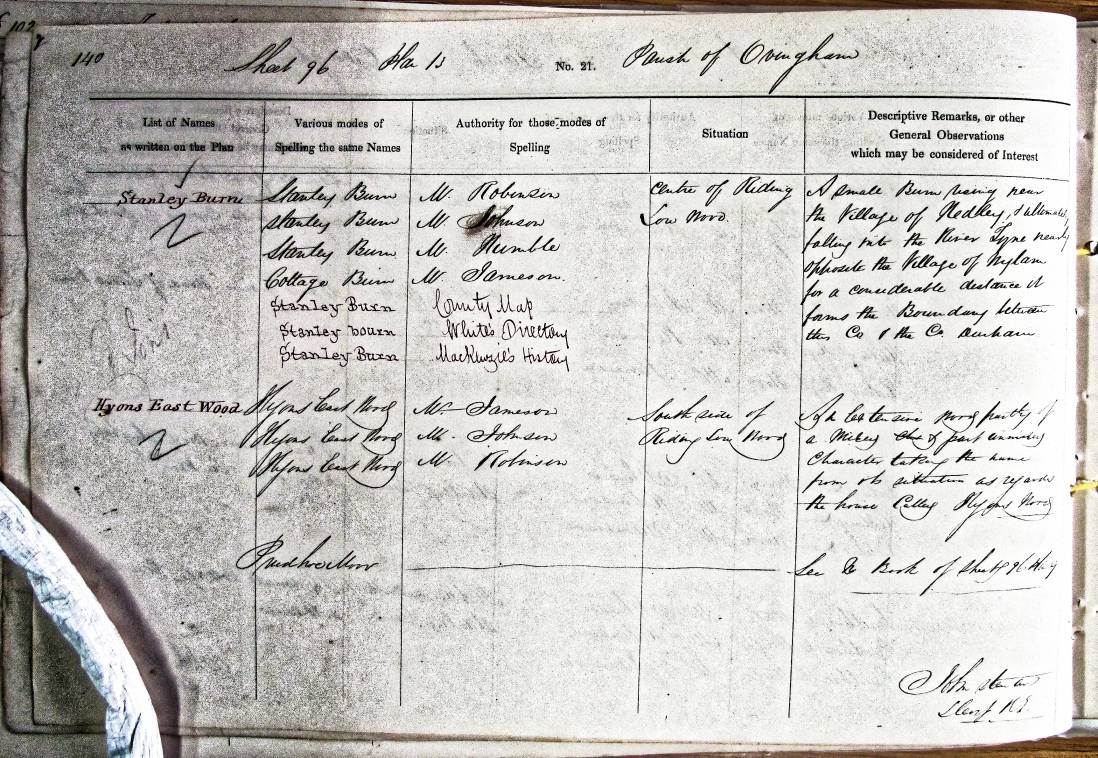 140 Sheet 96 Plan 13 No. 21. Parish of Ovingham
List of Names
as written on the Plan
Various modes of
Spelling the same Names
Authority for those modes of
Spelling
Situation
Descriptive Remarks, or other
General Observations
which may be considered of Interest
Stanley Burn
Stanley Burn
Stanley Burn
Stanley Burn
Cottage Burn
Stanley Burn
Stanley bourn
Stanley Burn
Mr. Robinson
Mr. Johnson
Mr. Humble
Mr. Jameson.
County Map
White's Directory
MacKenzie's History
Centre of Riding
Low Wood.
A small Burn rising near
the Village of Hedley, & ultimately
falling into the River Tyne nearly
opposite the Village of Wylam
for a considerable distance it
forms the Boundary between
this Co & the Co. Durham
Joint
Hyons East Wood
Hyons East Wood
Hyons East Wood
Hyons East Wood
Mr. Jameson
Mr. Johnson
Mr. Robinson
South side of
Riding Low Wood
An Extensive Wood partly of
a Mixed & part
Character taking the name
from its situation as regards
the house Called Hyons Wood
Prudhoe Moor
See Book of Sheet 96 Plan 9
John
Serg R.E.